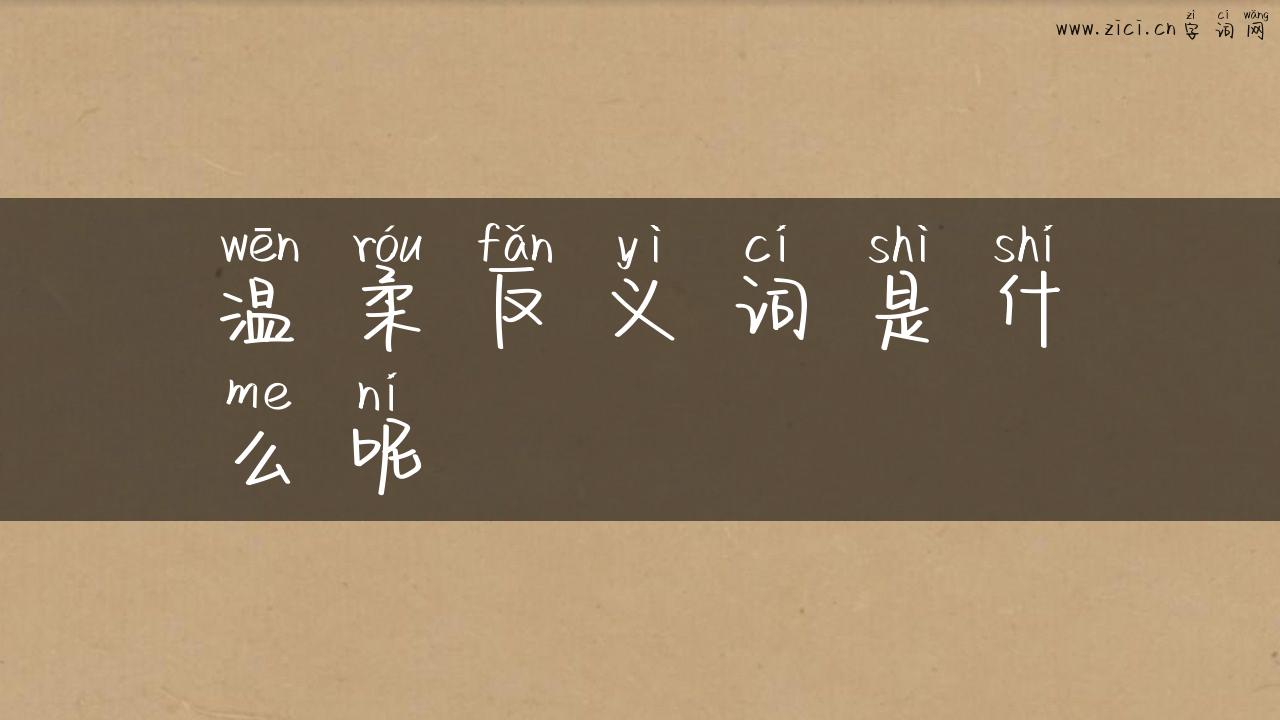 zì cí wǎng
www.zici.cn 字词网
wēn róu fǎn yì cí shì shí
温柔反义词是什
me ní
么呢